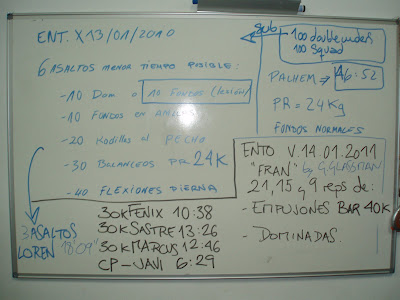 ENT. X 13/01/2010
6 ASALTOS MENOR TIEMPO POSIBLE:
-10 Dom o 10 FONDOS (lesion)
-10 FONDOS EN ANILLAS
-20 Rodillas al PECHO
-30 BALANCEOS PR 24K
-40 FLEXIONES PIERNA
3 ASALTOS
LOREN 18'09"
30K FENIX 10:38
30K SASTRE 13:26
30K MARCUS 12:46
CP-JAVI 6:29
Sub
100 double unders
100 Squad
PALHEM → 46:52
PR = 24 Kg
FONDOS NORMALES
ENTO V. 14.01.2011
"FRAN" by G. GLASSMAN
21, 15 y 9 reps de:
- EMPUJONES BAR 40K
- DOMINADAS.